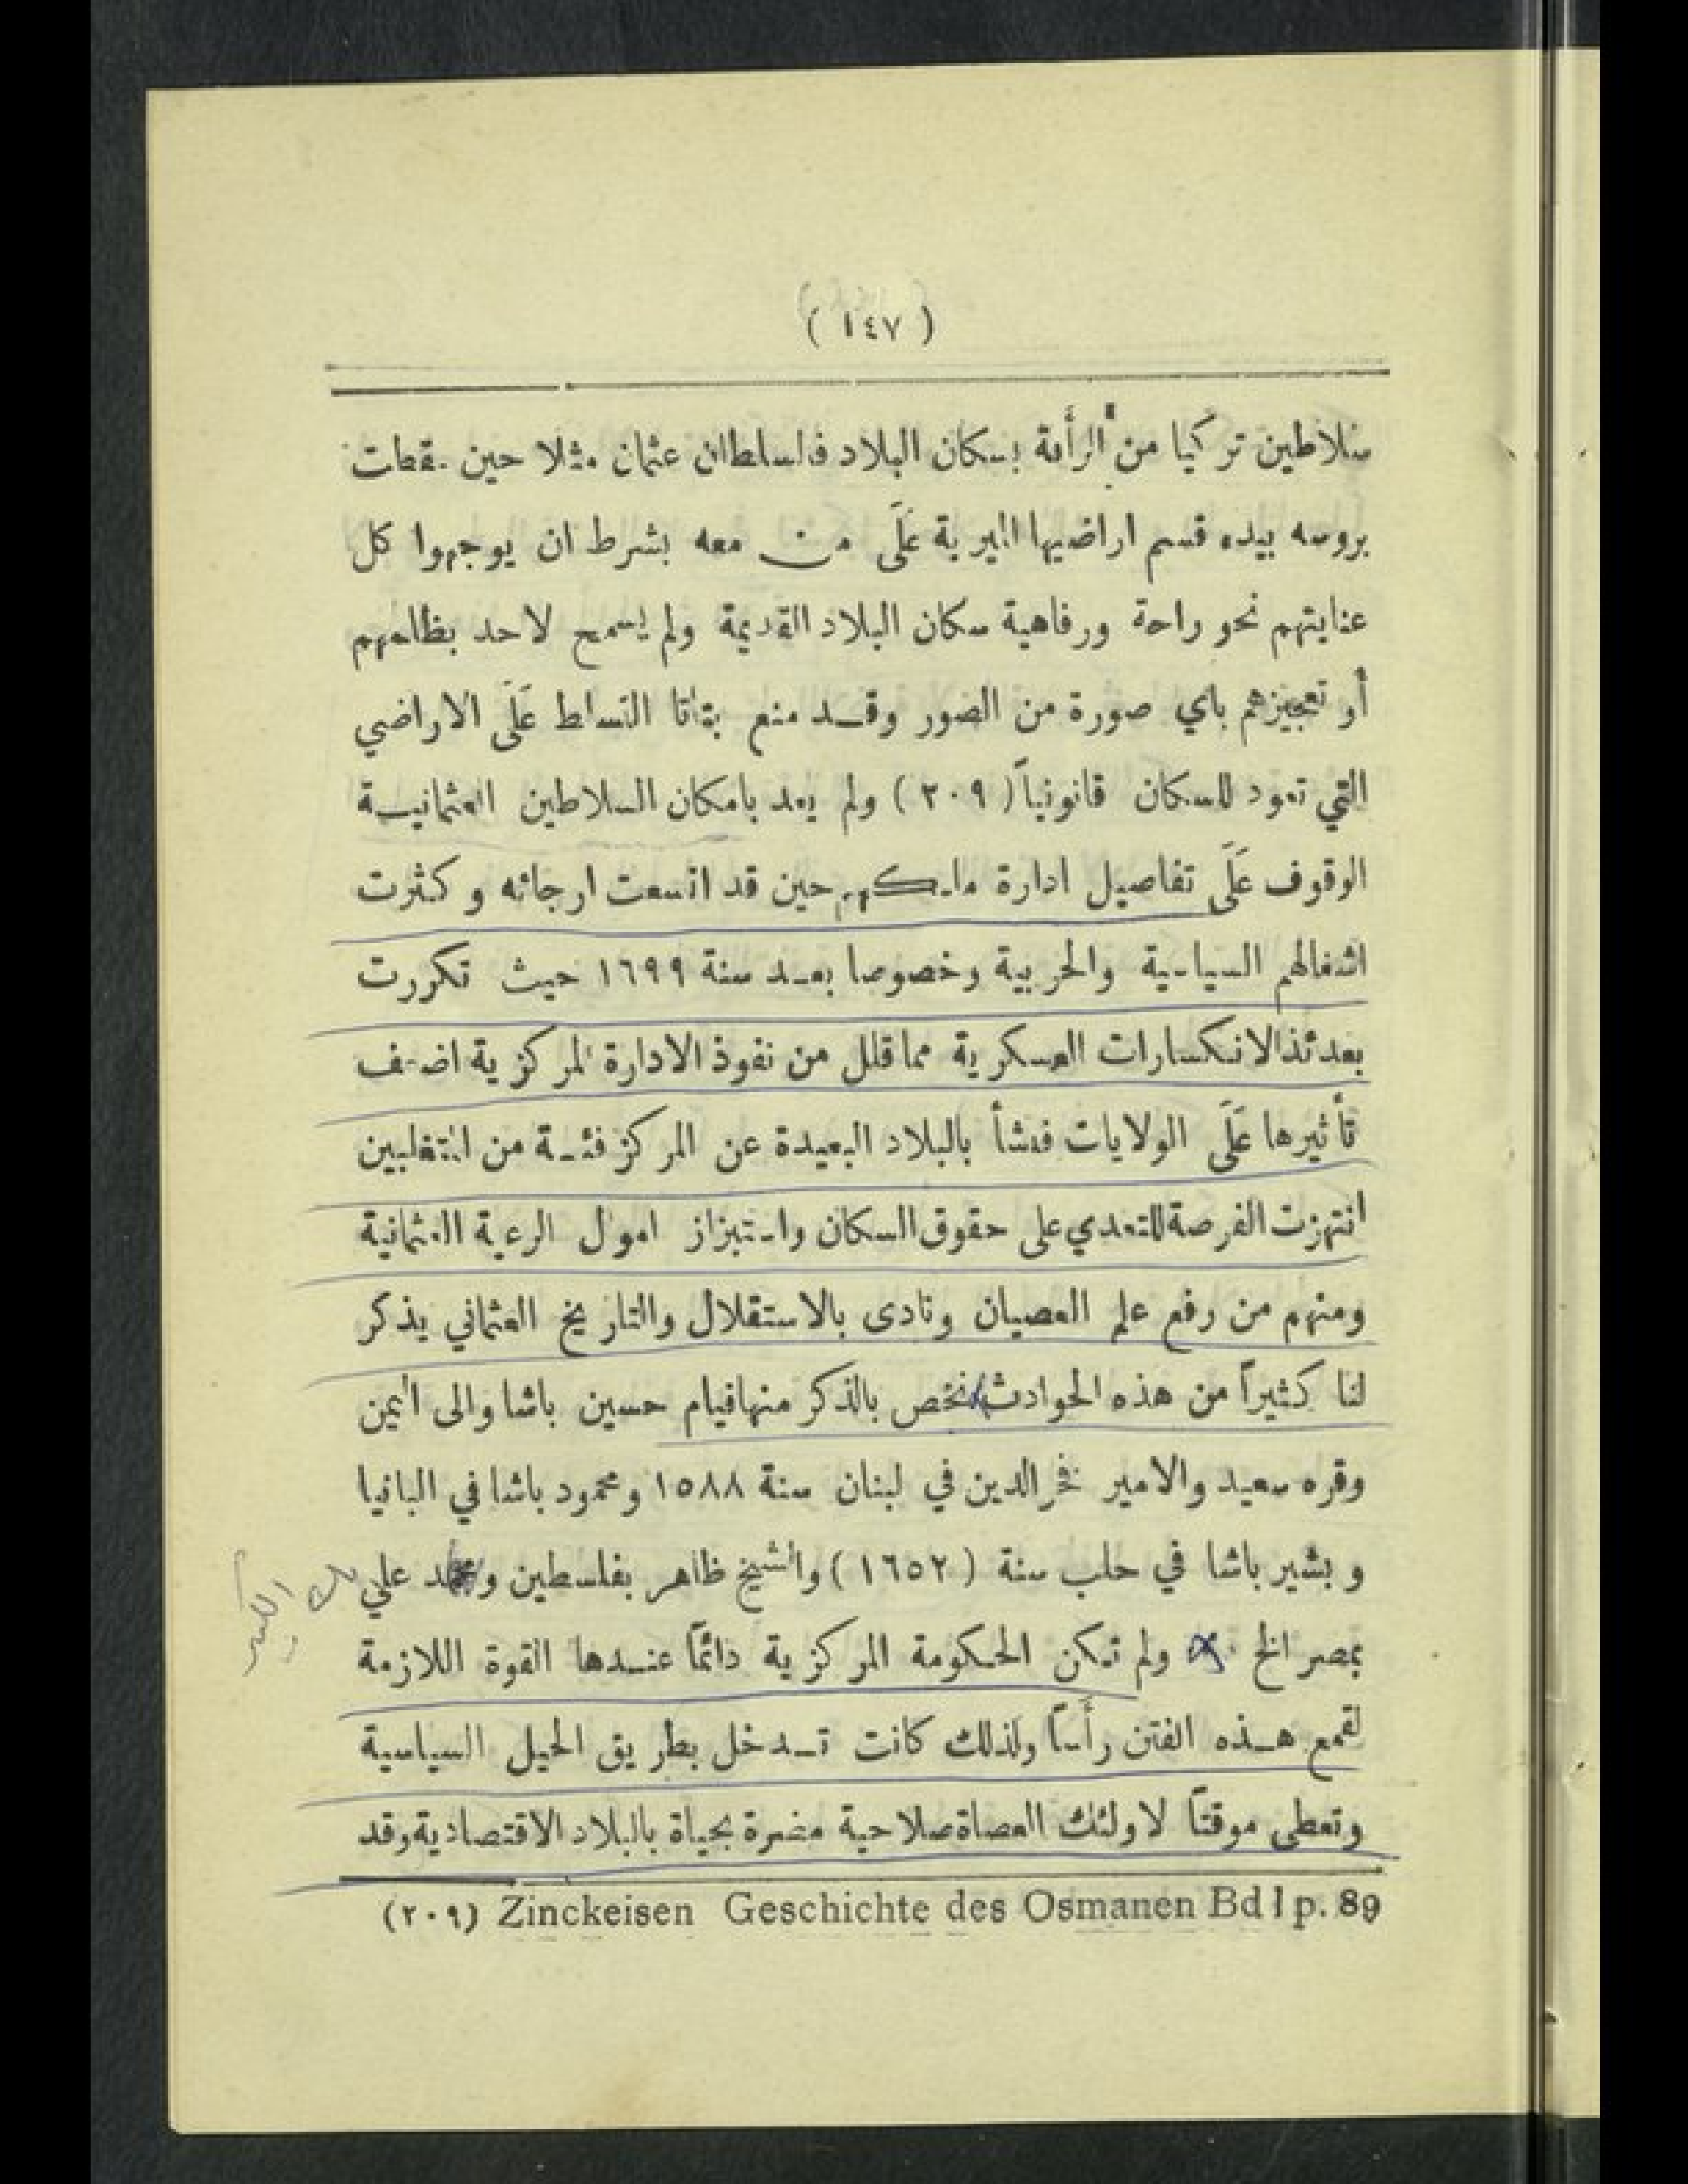 ( ١٤٧ )
سلاطين تركيا من الرأفة بسكان البلاد فالسلطان عثمان مثلا حين سقطت
بروسه بيده قسم اراضيها الاميرية عَلَى من معه بشرط ان يوجهوا كل
عنايتهم نحو راحة ورفاهية سكان البلاد القديمة ولم يسمح لاحد بظلمهم
أو تعجيزهم باي صورة من الصور وقد منع بتاتا التسلط عَلَى الاراضي
التي تعود للسكان قانونياً (٢٠٩) ولم يعد بامكان السلاطين العثمانية
الوقوف عَلَى تفاصيل ادارة ملكهم حين قد اتسعت ارجائه وكثرت
اشغالهم السياسية والحربية وخصوصا بعد سنة ١٦٩٩ حيث تكررت
بعدئذ الانكسارات العسكرية مما قلل من نفوذ الادارة المركزية اضعف
تأثيرها عَلَى الولايات فنشأ بالبلاد البعيدة عن المركز فئة من المتغلبين
انتهزت الفرصة للتعدي على حقوق السكان واستبزاز اموال الرعية العثمانية
ومنهم من رفع علم العصيان ونادى بالاستقلال والتاريخ العثماني يذكر
لنا كثيراً من هذه الحوادث نخص بالذكر منها قيام حسين باشا والى اليمن
وقره سعيد والامير فخر الدين في لبنان سنة ١٥٨٨ ومحمود باشا في البانيا
وبشير باشا في حلب سنة (١٦٥٢) والشيخ ظاهر بفلسطين و علي
بك الكبير
بمصر الخ ولم تكن الحكومة المركزية دائمًا عندها القوة اللازمة
لقمع هذه الفتن رأسًا ولذلك كانت تدخل بطريق الحيل السياسية
وتعطى موقتًا لاولئك العصاة صلاحية مضرة بحياة بالبلاد الاقتصادية وقد
(٢٠٩) Zinckeisen Geschichte des Osmanen Bd I p. 89